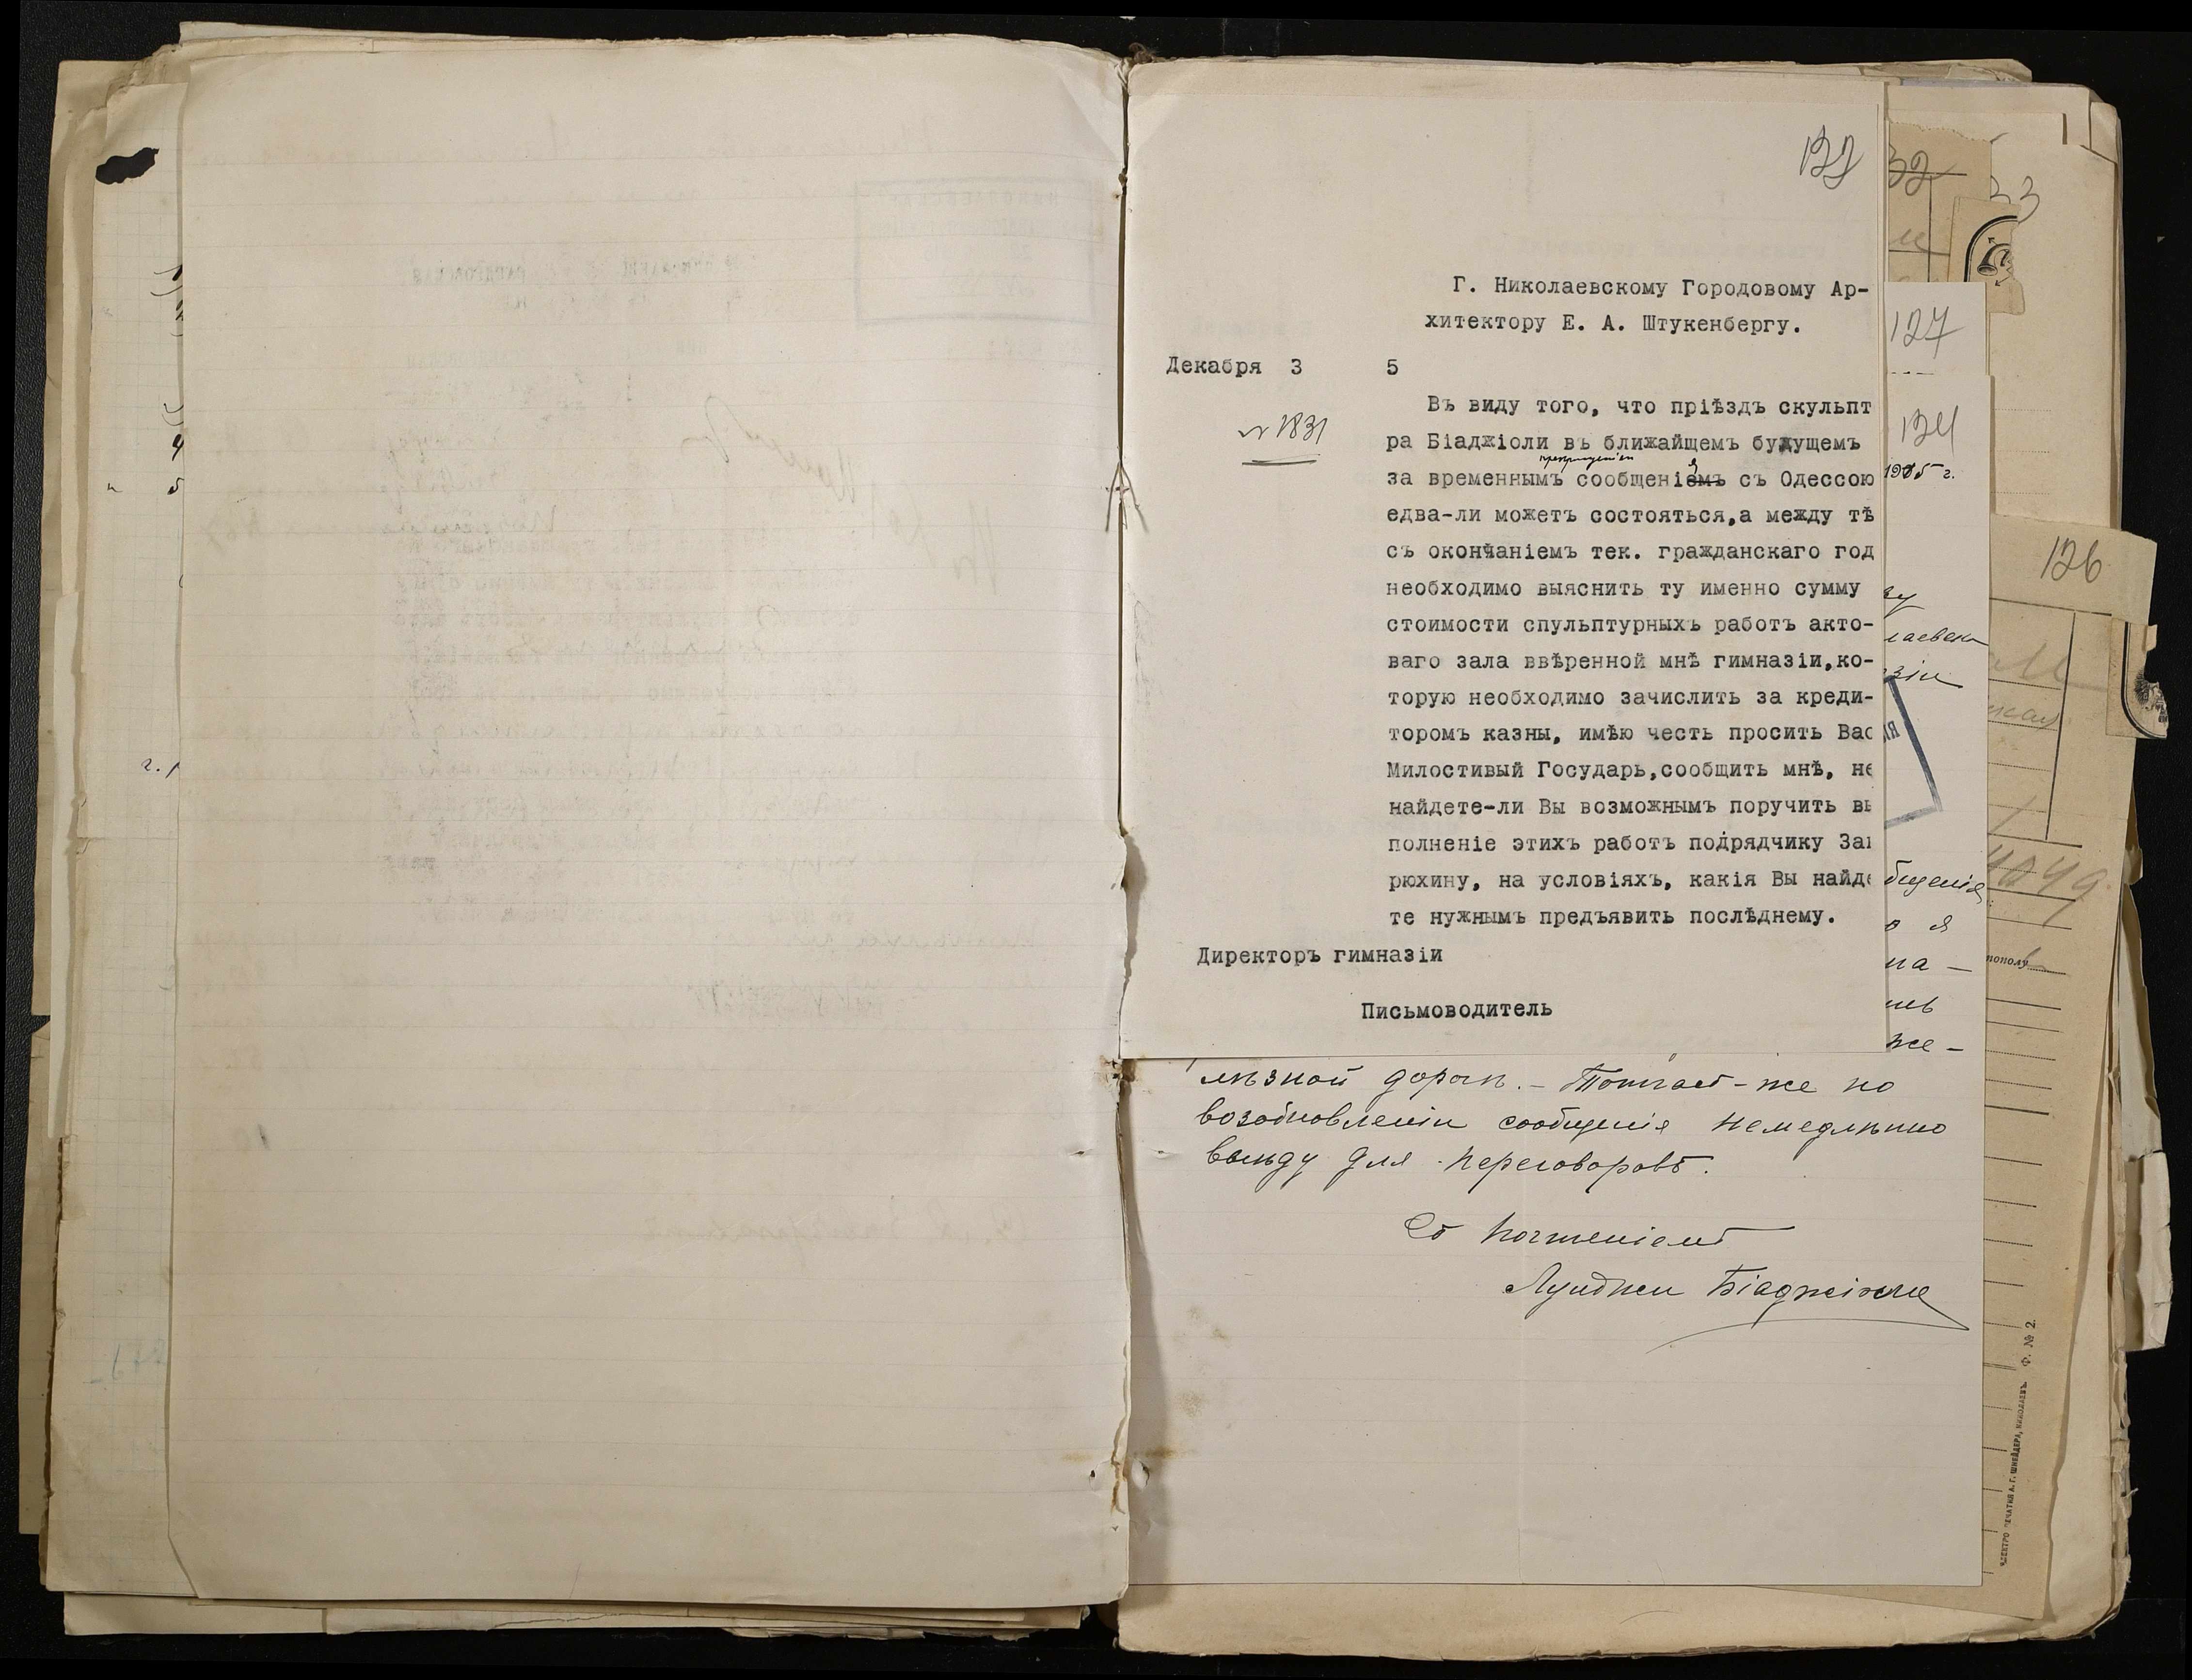 132
Г. Николаевскому Городовому Ар-
хитектору Е. А. Штукенбергу.
Декабря 3 5
№ 1831
Въ виду того, что пріѣздъ скульпт
ра Біаджіоли въ ближайщемъ будущемъ
прекращеніем
за временнымъ сообщеніемъ я съ Одессою
едва-ли можетъ состояться,а между тѣ
съ окончаніемъ тек. гражданскаго год
необходимо выяснить ту именно сумму
стоимости спульптурныхъ работъ акто-
ваго зала ввѣренной мнѣ гимназіи,ко-
торую необходимо зачислить за креди-
торомъ казны, имѣю честь просить Вас
Милостивый Государь,сообщить мнѣ, не
найдете-ли Вы возможнымъ поручить вы
полненіе этихъ работъ подрядчику Зап
рюхину, на условіяхъ, какія Вы найде
те нужнымъ предъявить послѣднему.
Директоръ гимназіи
Письмоводитель
лѣзной дорогѣ.- Тотчасъ-же по
возобновленіи сообщенія немедлѣнно
выѣду для переговоровъ.
Съ почтеніемъ
Луиджи Біаджіоли
32
33
127
134
1905 г.
зіи
ія
бщенія
о я
на -
же -
126
4049
пополу
ЭЛЕКТРО ПЕЧАТНЯ А. Г. ШНЕЙДЕРА, НИКОЛАЕВЪ. Ф. № 2.